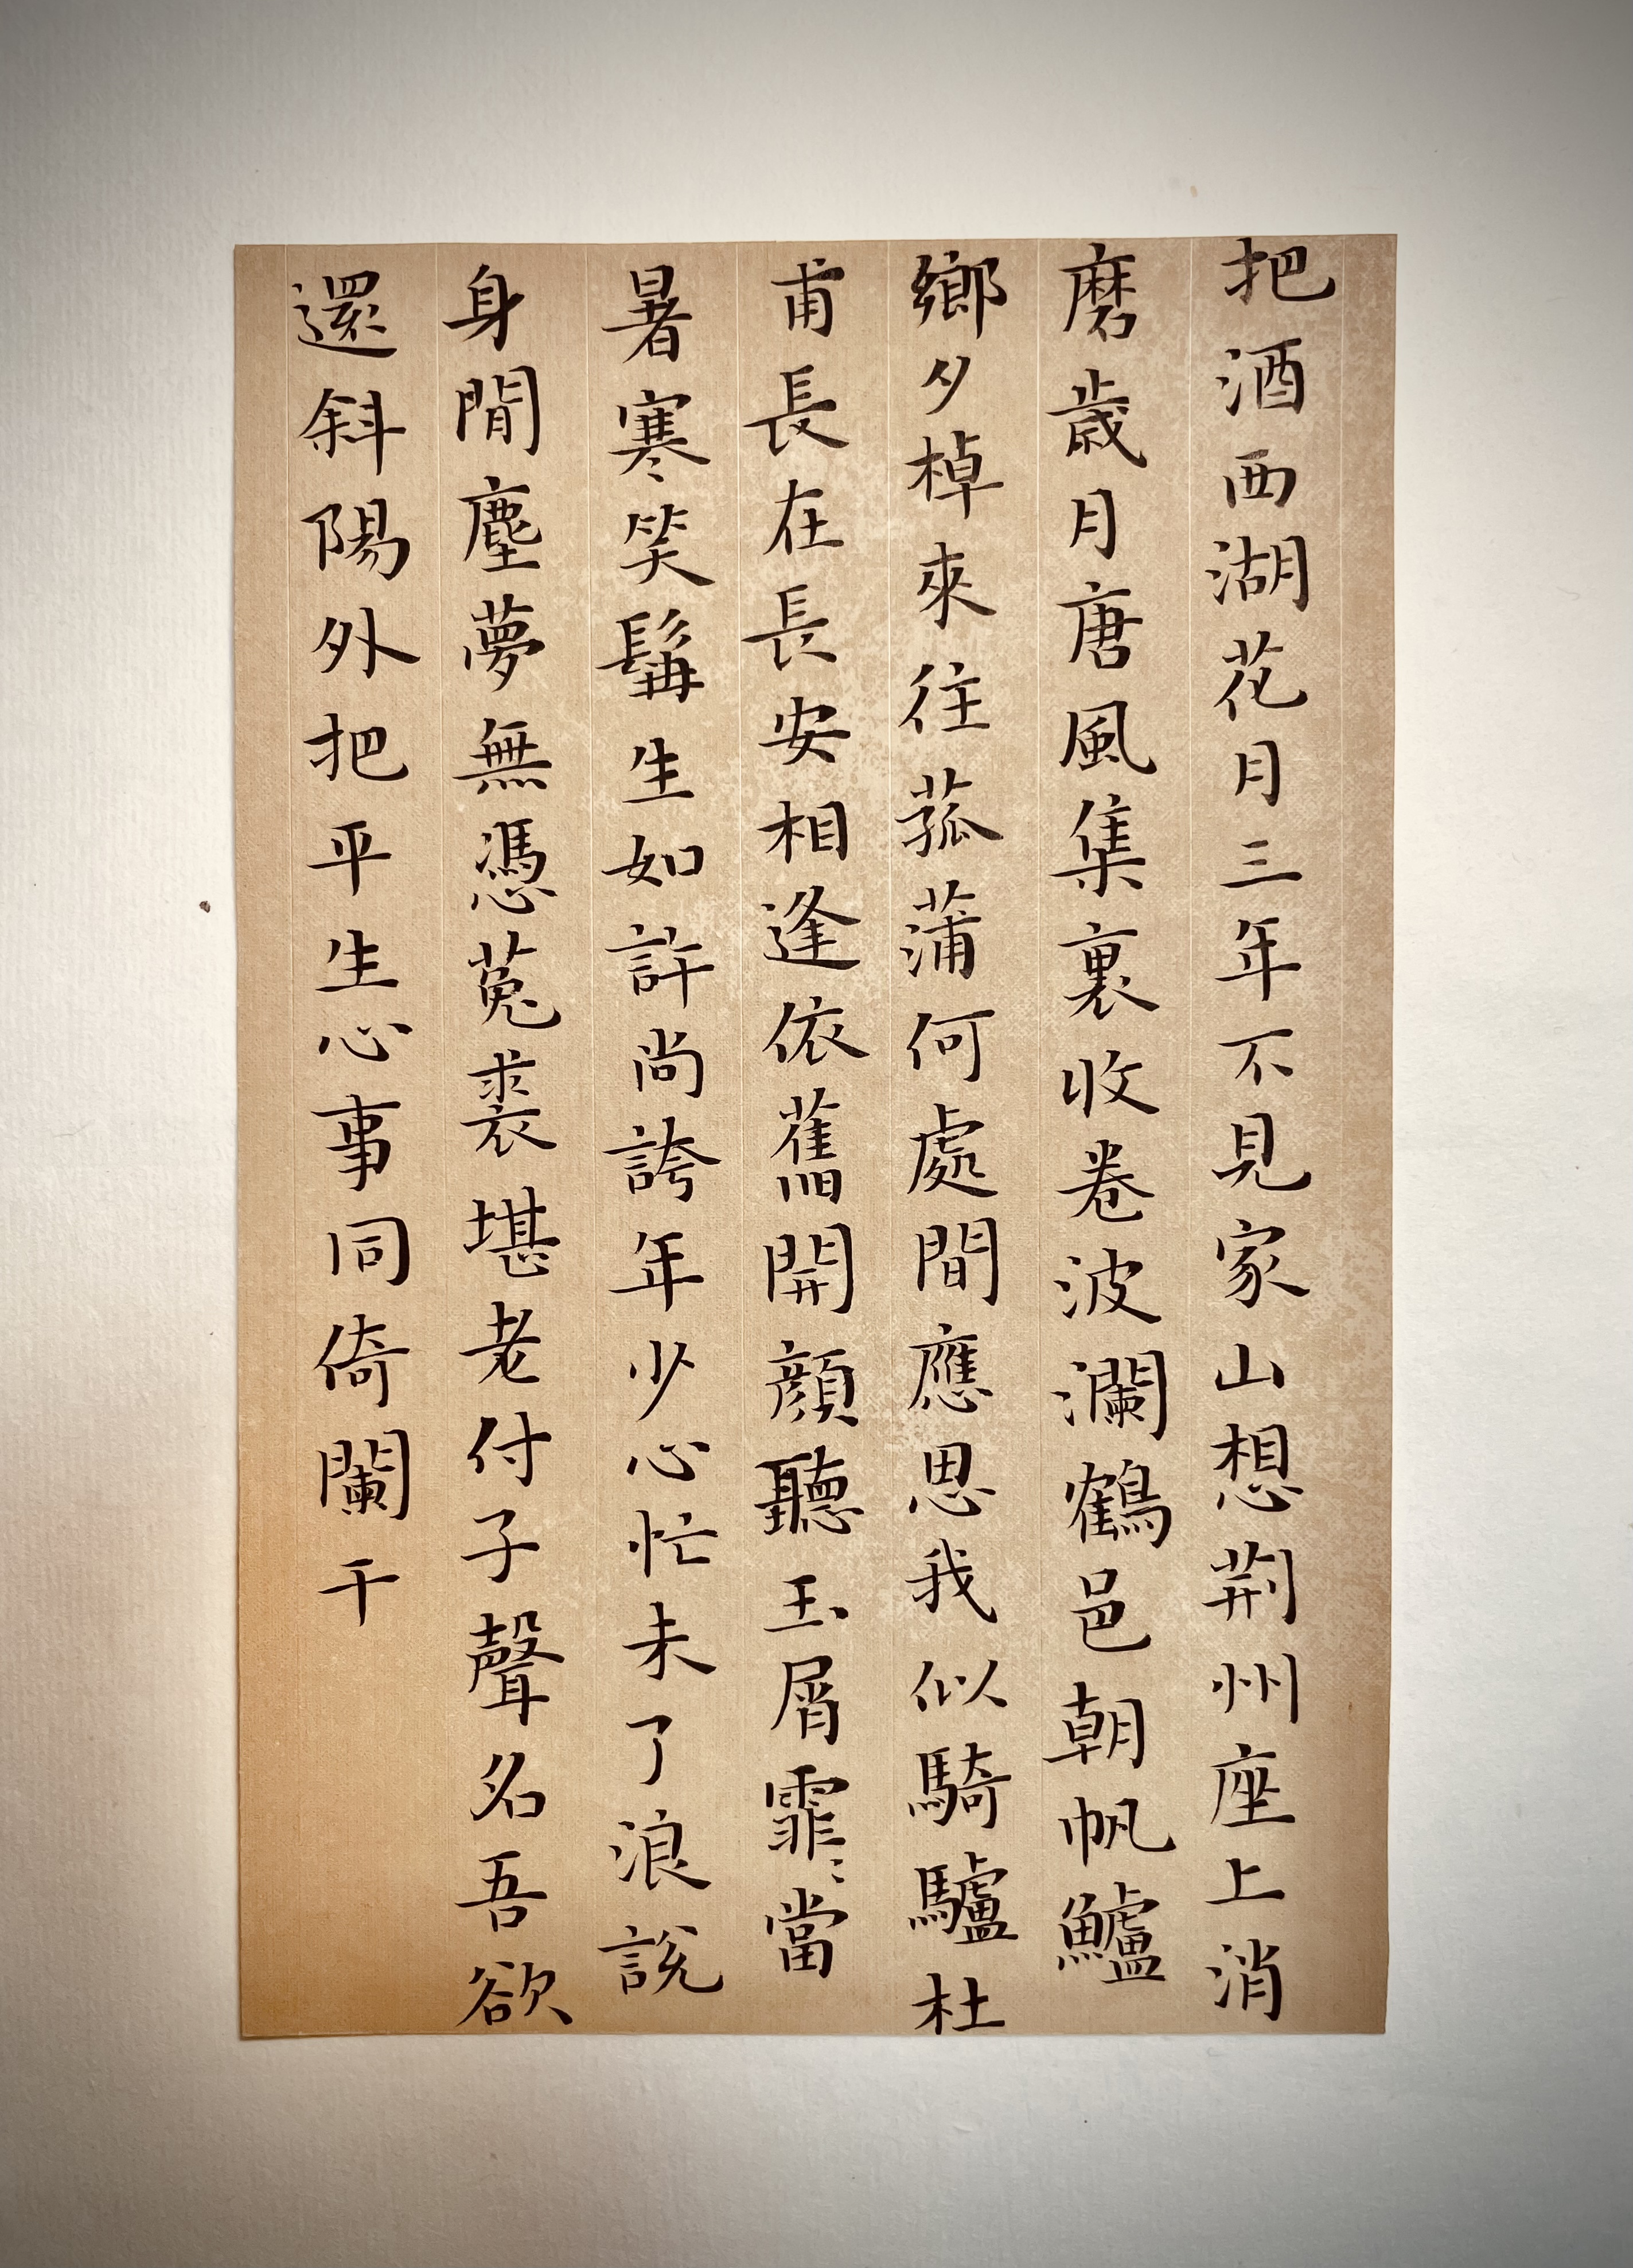 把酒西湖花月三年不見家山想荆州座上消
磨歲月唐風集裏收卷波瀾鶴邑朝帆鱸
鄉夕棹來往菰蒲何處間應思我似騎驢杜
甫長在長安相逢依舊開顔聽玉屑霏〻當
暑寒笑鬅生如許尚誇年少心忙未了浪說
身閒塵夢無憑菟裘堪老付子聲名吾欲
還斜陽外把平生心事同倚闌干